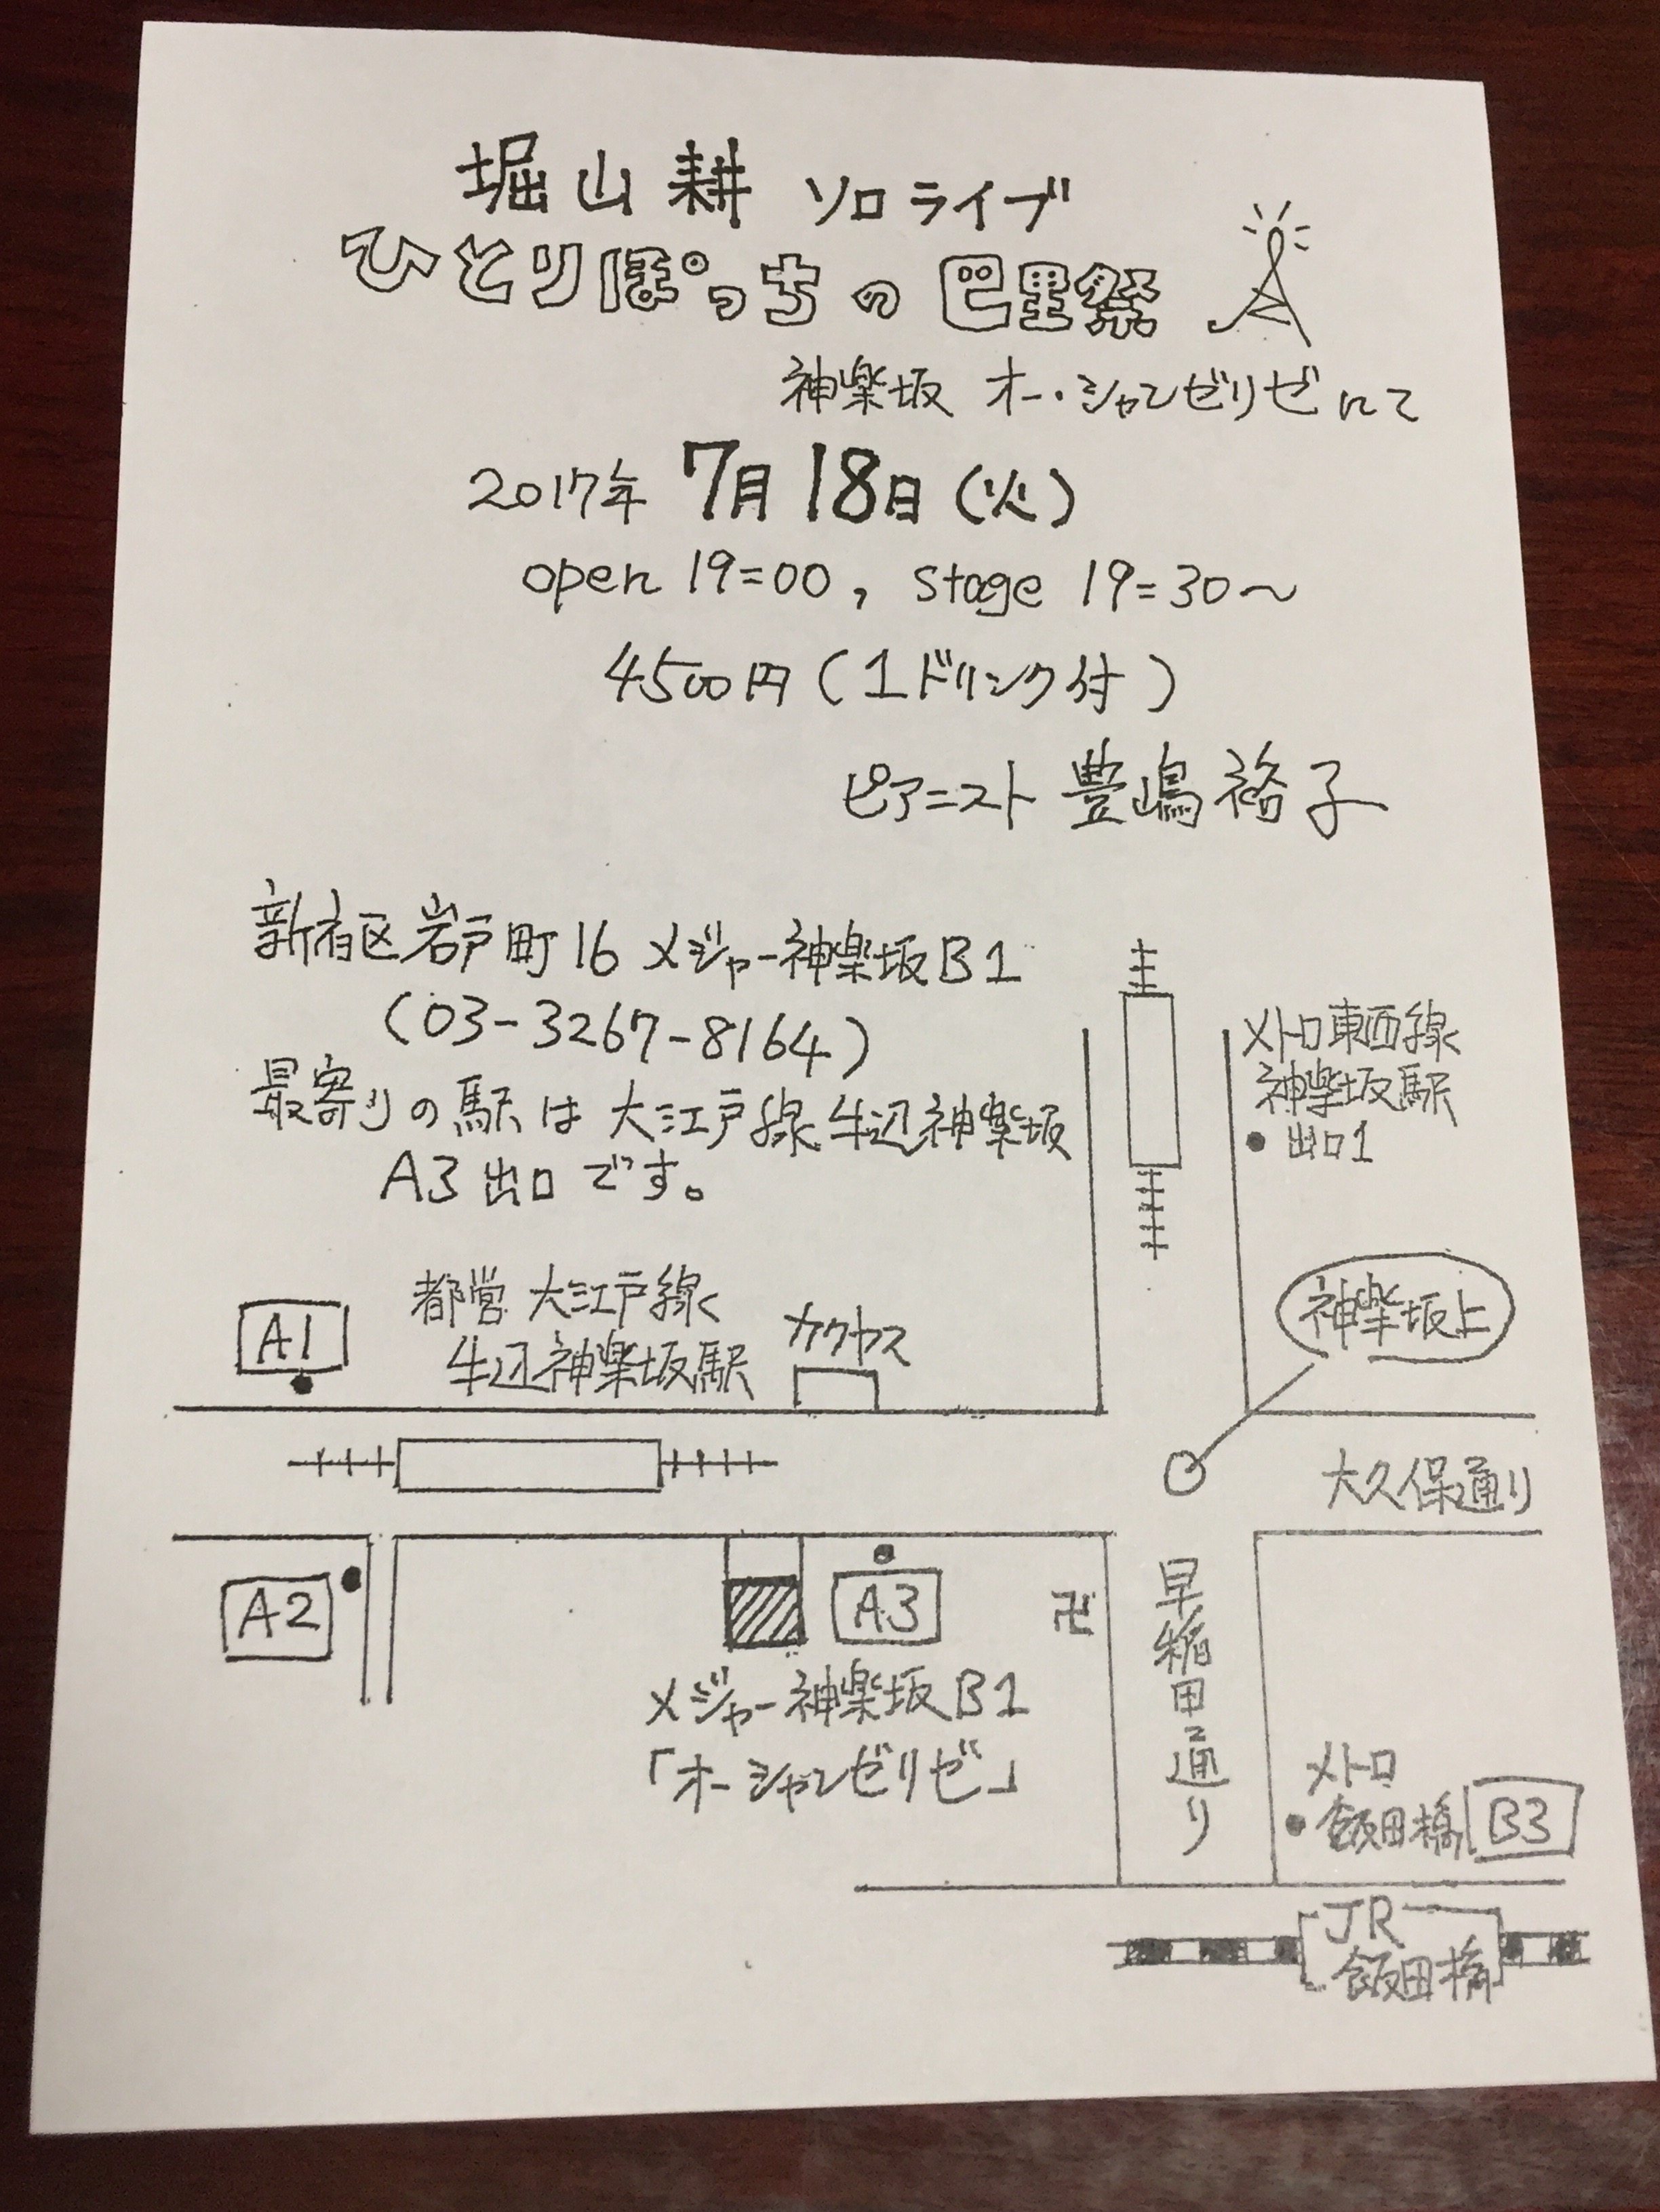 堀山耕 ソロライブ
ひとりぽっちの巴里祭
神楽坂 オー・シャンゼリゼにて
2017年 7月18日(火)
open 19=00, stage 19=30〜
4500円(1ドリンク付)
ピアニスト 豊嶋裕子
新宿区岩戸町16 メジャー神楽坂B1
(03-3267-8164)
最寄りの駅は大江戸線牛込神楽坂
A3出口です。
メトロ東西線
神楽坂駅
出口1
神楽坂上
都営大江戸線
牛込神楽坂駅
A1
カクヤス
大久保通り
A2
A3
卍
早稲田通り
メジャー神楽坂B1
「オーシャンゼリゼ」
メトロ
飯田橋 B3
JR
飯田橋